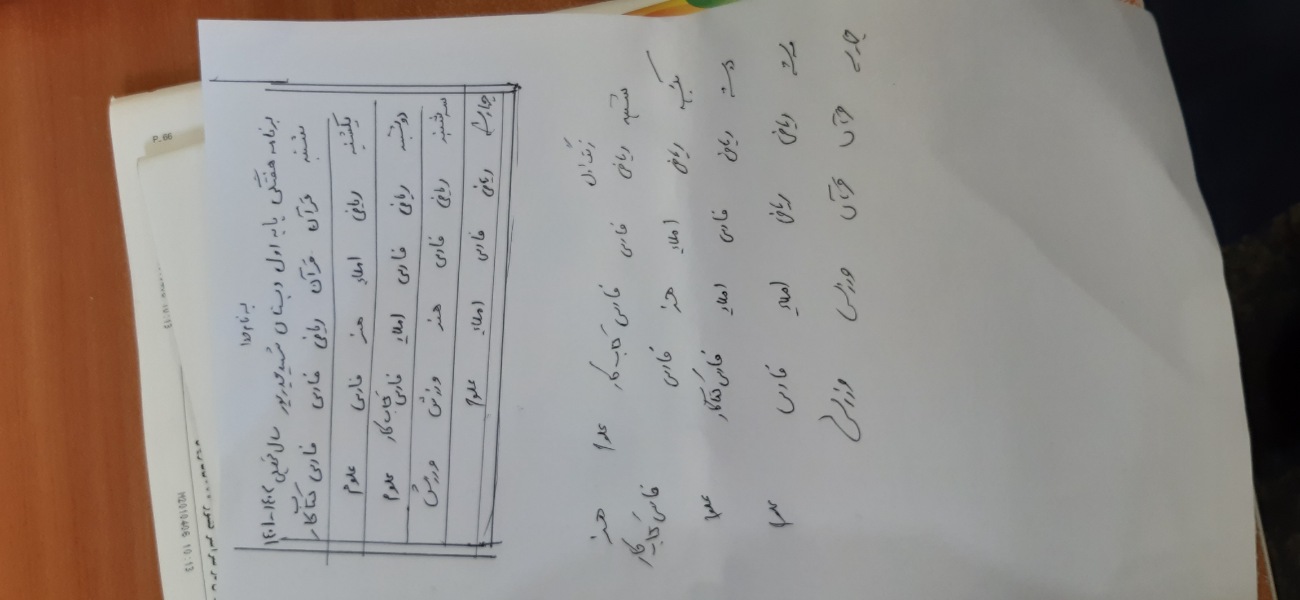 به نام خدا
برنامه هفتگی پایه اول دبستان شهید سال تحصیلی ۱۴۰۲-۱۴۰۱
شنبه قرآن قرآن ریاضی فارسی فارسی کتاب کار
یکشنبه ریاضی املا هنر فارسی علوم
دوشنبه ریاضی فارسی املا فارسی کتاب کار علوم
سه شنبه ریاضی فارسی هنر ورزش ورزش
چهارشنبه ریاضی فارسی املا علوم
زنگ اول
شنبه ریاضی فارسی فارسی کتاب کار علوم هنر
یکشنبه ریاضی املا هنر فارسی فارسی کتاب کار
ریاضی فارسی املا فارسی کتاب کار علوم
ریاضی ریاضی املا فارسی علوم
قرآن قرآن ورزش ورزش
P.66
10:13
H2010406 10:13